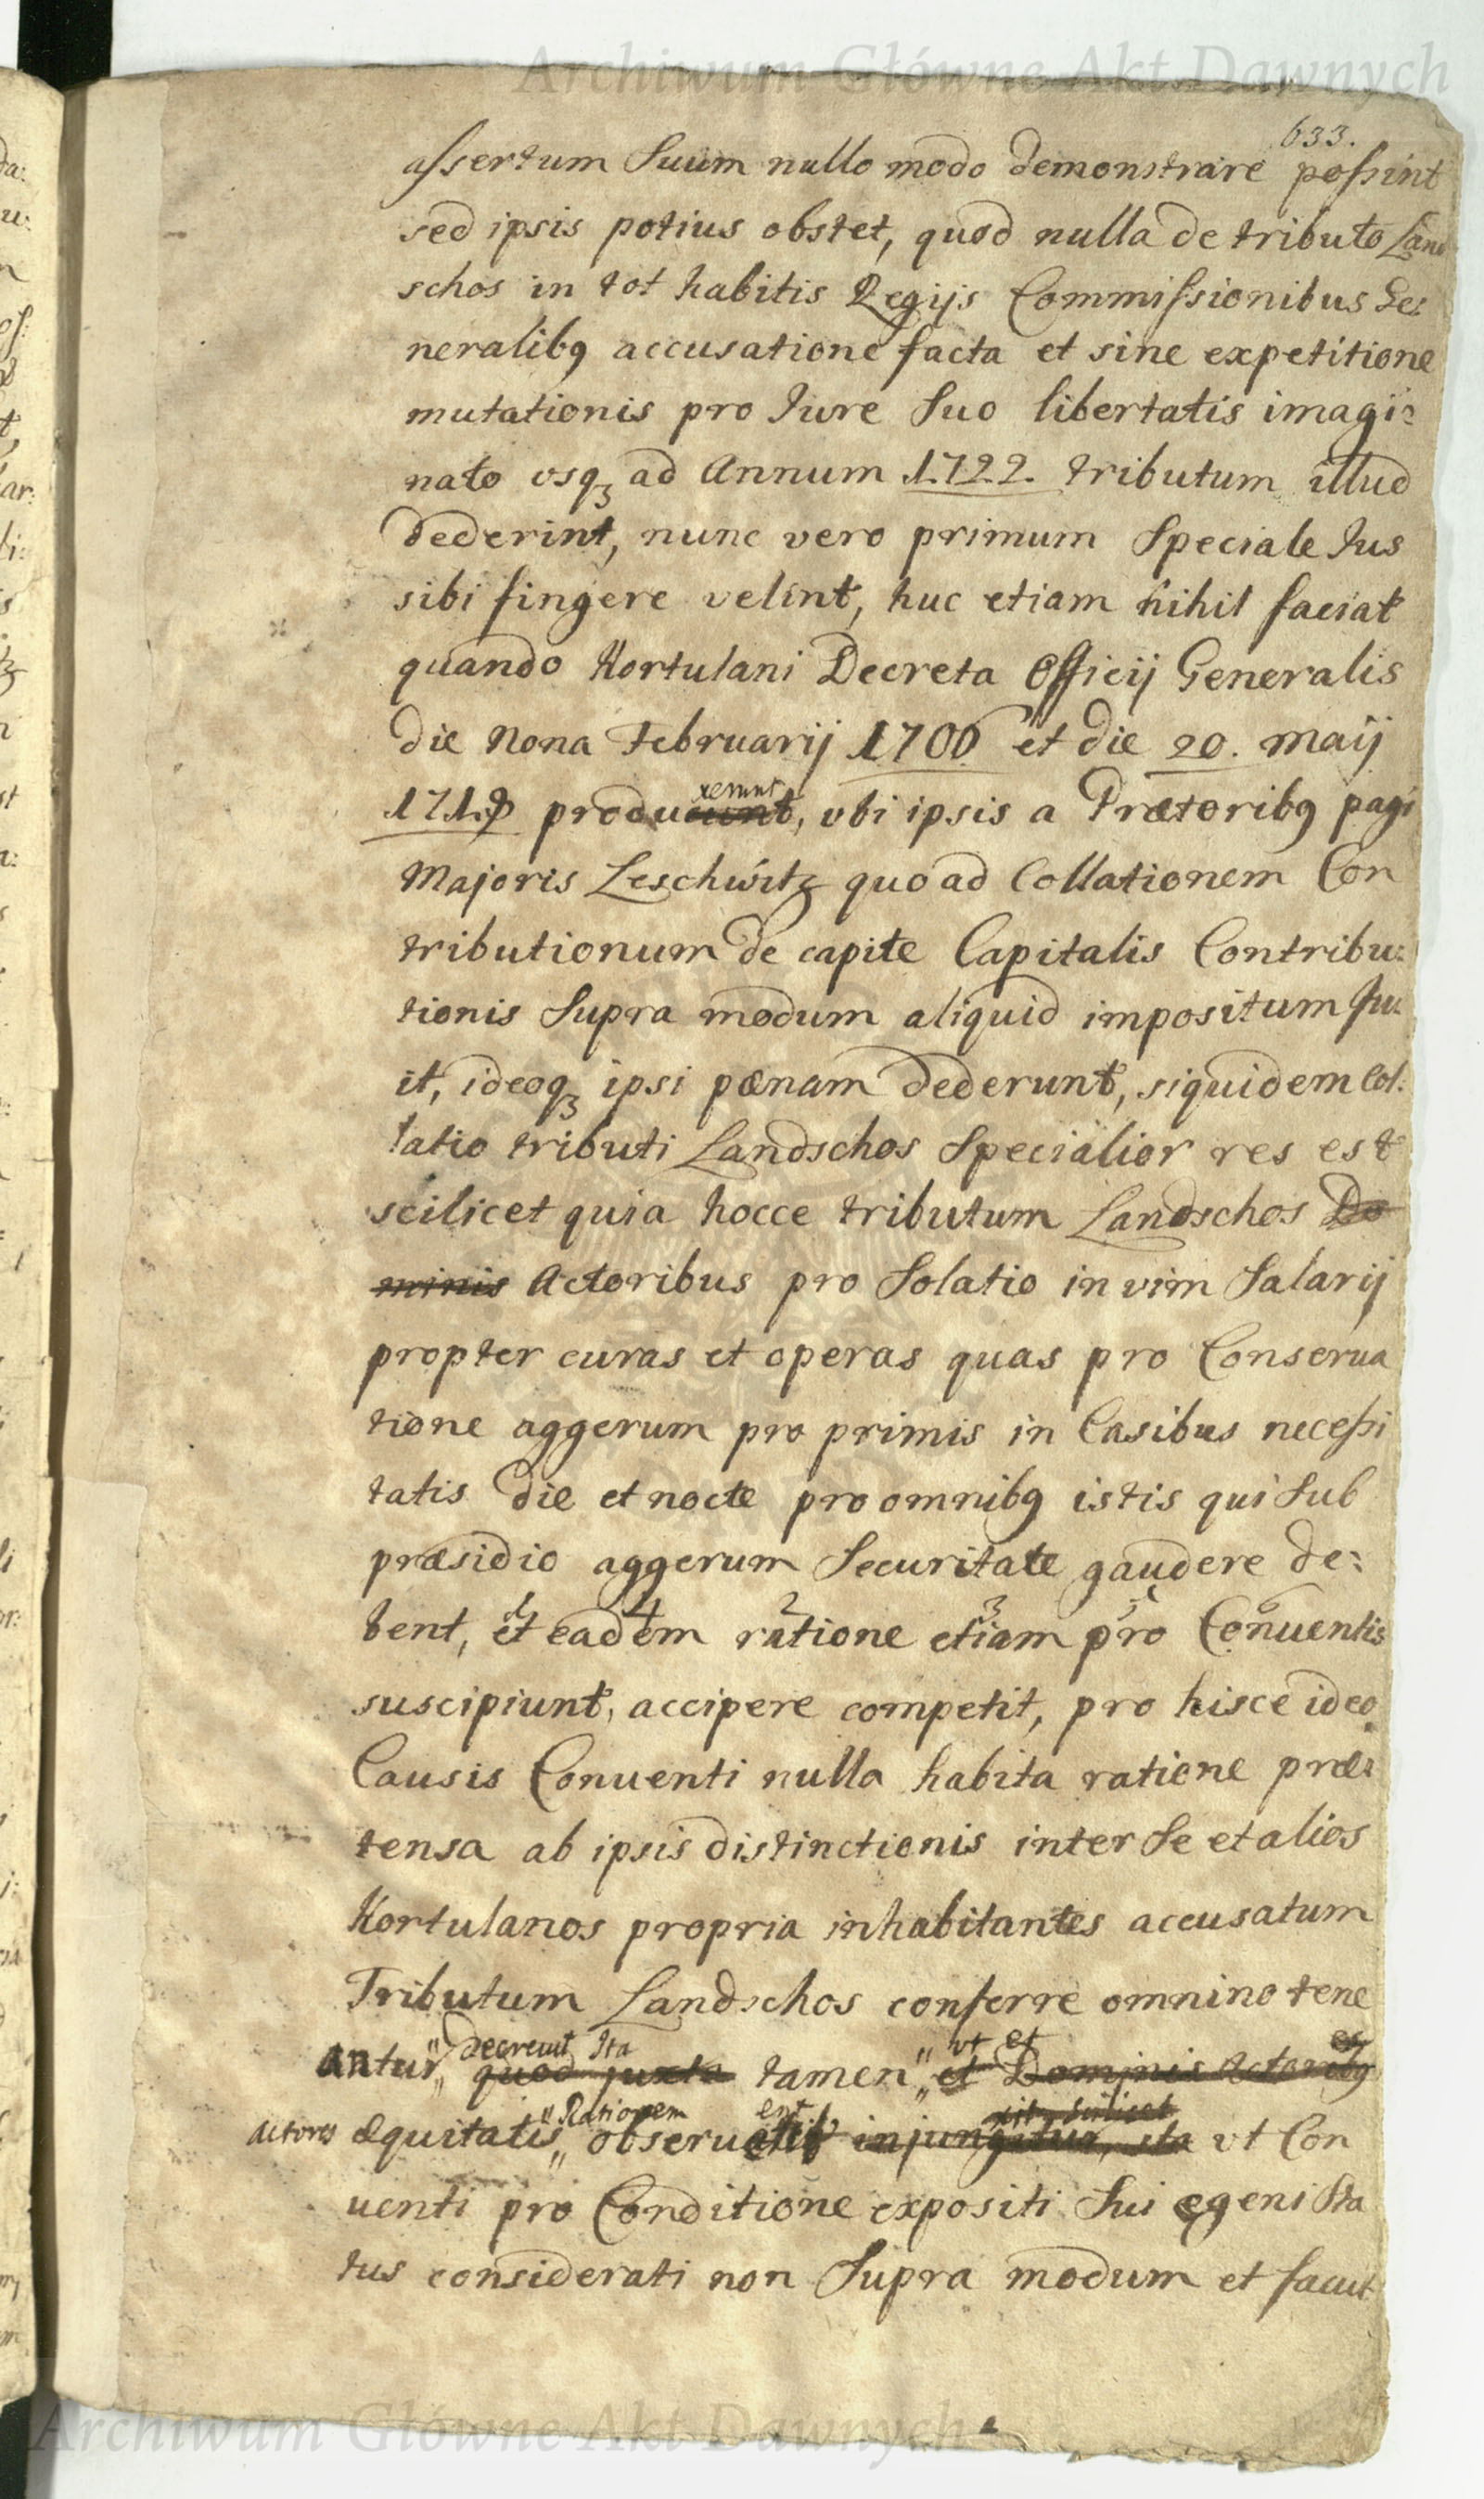 Archiwum Główne Akt Dawnych
633.
assertum Suum nullo modo demonstrare possint
sed ipsis potius obstet, quod nulla de tributo Land
schos in tot habitis Regijs Commissionibus Ge:
neralibq accusatione facta et sine expetitione
mutationis pro Jure Suo libertatis imagi:
nato vsqꝫ ad Annum 1722. tributum illud
dederint, nunc vero primum Speciale Jus
sibi fingere velint, huc etiam nihil faciat
quando Hortulani Decreta Officij Generalis
die Nona Februarij 1706 et die 20. Maij
xerunt
1719 producunt, vbi ipsis a Prætoribq pagi
Majoris Leschwitz quo ad Collationem Con
tributionum de capite Capitalis Contribu:
tionis Supra modum aliquid impositum fu:
it, ideoqꝫ ipsi pænam dederunt, siquidem Col:
latio tributi Landschos Specialior res est
scilicet quia hocce tributum Landschos Do
minis Actoribus pro Solatio in vim Salarij
propter curas et operas quas pro Conserua
tione aggerum pro primis in Casibus necessi
tatis die et nocte pro omnibq istis qui Sub
præsidio aggerum Securitate gaudere de:
1 4 2 3 5 6
bent, et eadem ratione etiam pro Conuentis
suscipiunt, accipere competit, pro hisce ideo
Causis Conuenti nulla habita ratione præ:
tensa ab ipsis distinctionis inter Se et alios
Hortulanos propria inhabitantes accusatum
Tributum Landschos conferre omnino tene
Decreuit Ita vt et es
antur, quod juxta tamen et Dominis Actoribq
Rationem ent xit, scilicet
Actores æquitatis obseruatis injungitur, ita vt Con
uenti pro Conditione expositi Sui egeni Sta
tus considerati non Supra modum et facul
Archiwum Główne Akt Dawnych